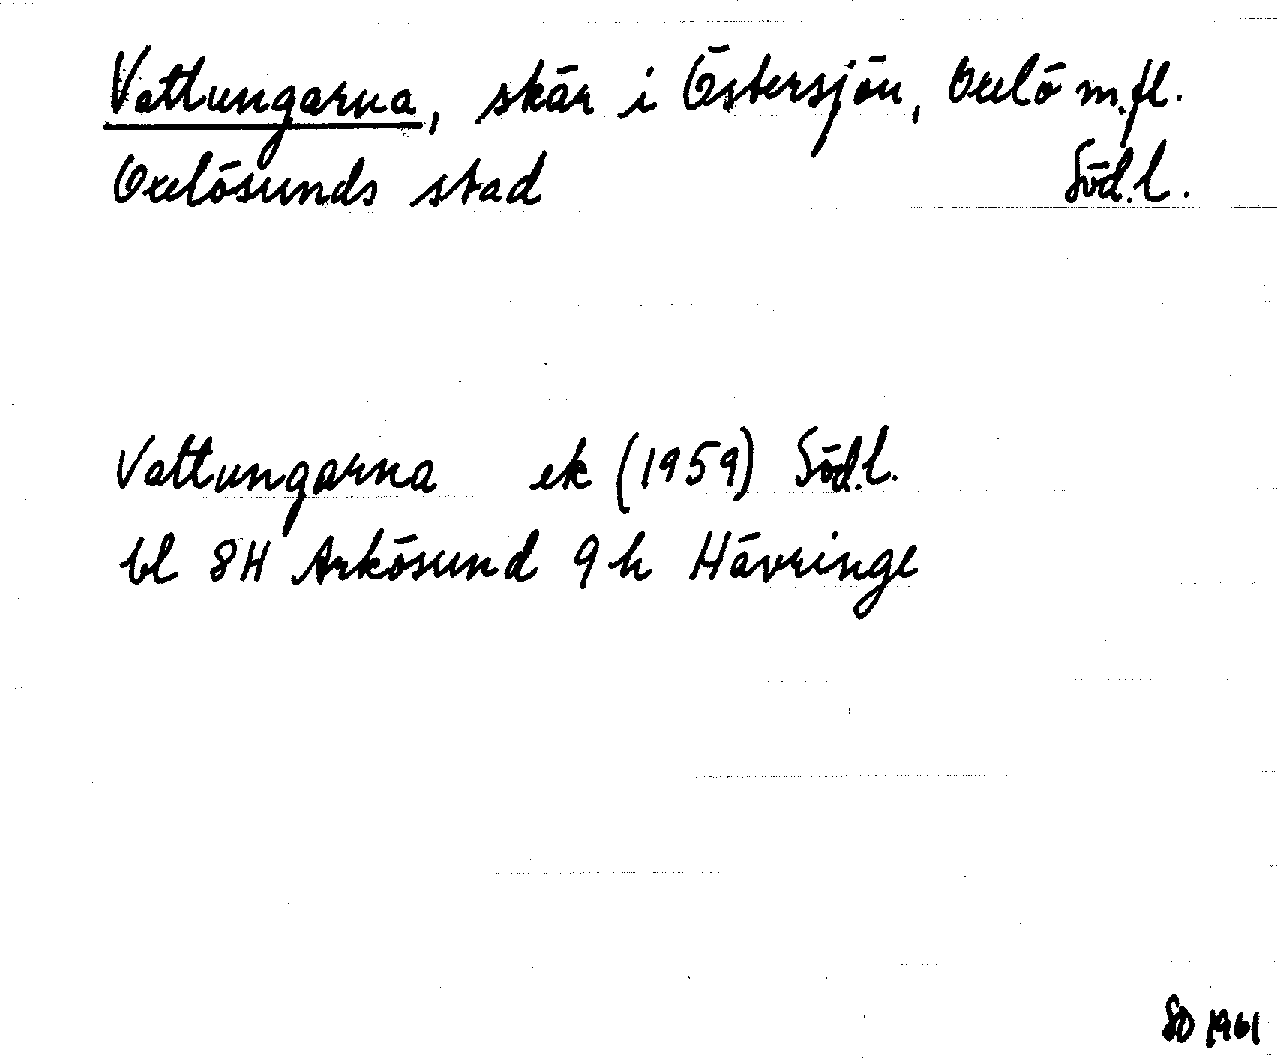 Vattungarna, skär i Östersjön, Oxelö m.fl.
Oxelösunds stad Södl.
Vattungarna ek (1959) Södl.
bl 8H Arkösund 9h Hävringe
SO 1961